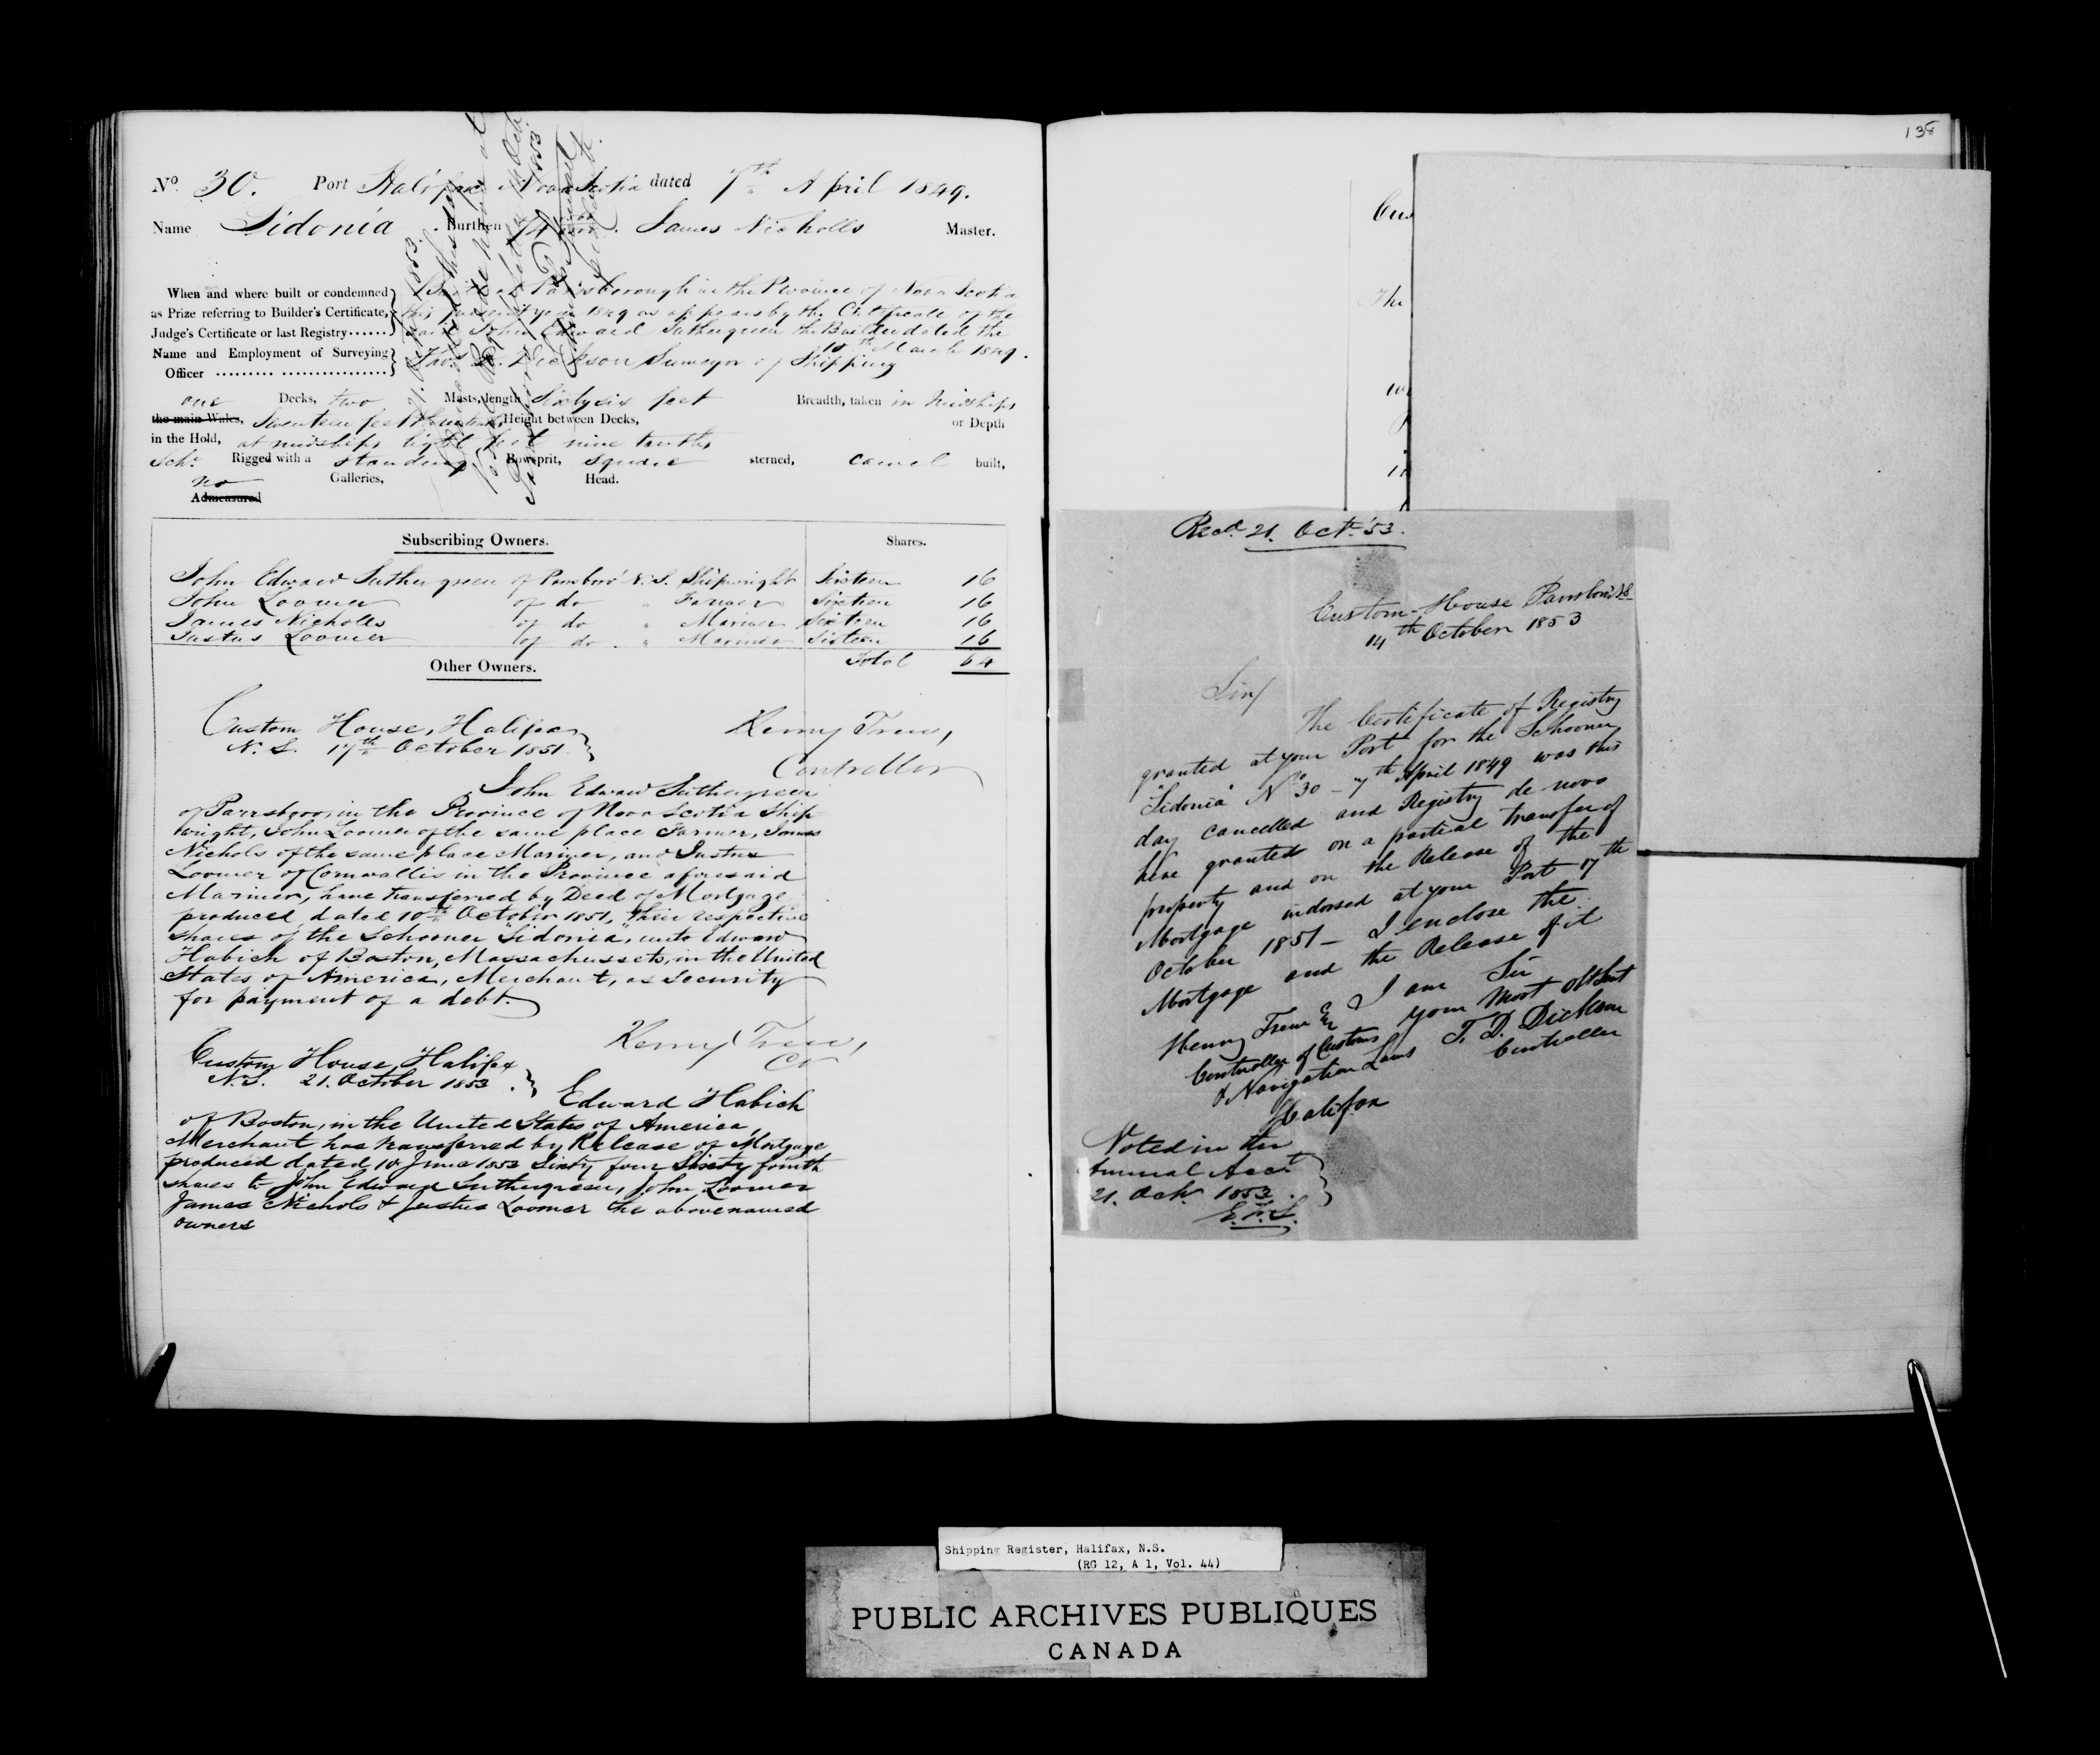 138
No. 30. Port Halifax Nova Scotia dated 7th April 1849.
Name Sidonia Burthen James Nicholls Master.
When and where built or condemned as Prize referring to Builder's Certificate, Judge's Certificate or last Registry......
Built at Parrsborough in the Province of Nova Scotia
this present year 1849 as appears by the Certificate of the
said John Edward Suthergreen the Builder dated the
March 1849.
Name and Employment of Surveying Officer
Thos. D. Dickson Surveyor of Shipping
one Decks, two Masts, length Sixty six feet Breadth, taken in Midships
the main Wales, Seventeen feet Height between Decks, or Depth
in the Hold, at midships Eight feet nine tenths
Schr. Rigged with a standing Bowsprit, square sterned, carvel built,
no Galleries, Head.
Admeasured
Subscribing Owners. Shares.
John Edward Suthergreen of Parrsboro' N.S. Shipwright Sixteen 16
John Loomer of do " Farmer Sixteen 16
James Nicholls of do " Mariner Sixteen 16
Justus Loomer of do " Mariner Sixteen 16
Total 64
Other Owners.
Custom House, Halifax
N.S. 17th October 1851.
Henry Trew,
Controller
John Edward Suthergreen
of Parrsboro, in the Province of Nova Scotia Ship
wright, John Loomer of the same place Farmer, James
Nichols of the same place Mariner, and Justus
Loomer of Cornwallis in the Province aforesaid
Mariner, have transferred by Deed of Mortgage
produced, dated 10th October 1851, their respective
shares of the Schooner "Sidonia", unto Edward
Habich of Boston, Massachussets, in the United
States of America, Merchant, as Security
for payment of a debt.
Henry Trew,
Cr
Custom House Halifax
N.S. 21. October 1853.
Edward Habich
of Boston, in the United States of America,
Merchant has transferred by Release of Mortgage
produced dated 10 June 1853 Sixty four Sixty fourth
shares to John Edward Suthergreen, John Loomer
James Nichols & Justus Loomer the abovenamed
owners
Recd. 21. Octr. '53.
Custom-House Parrsboro N.S.
14th October 1853
Sir/
The Certificate of Registry
granted at your Port for the Schooner
"Sidonia" No 30 - 7th April 1849 was this
day cancelled and Registry de novo
here granted on a partial transfer of
property and on the Release of the
Mortgage indorsed at your Port 17th
October 1851 - I enclose the
Mortgage and the Release of it
I am Sir
Your Most Obt Sert
T. D. Dickson
Controller
Henry Trew Esqr
Controller of Customs
& Navigation Laws
Halifax
Noted in the
Annual Acct
21. Octr. 1853.
Cus
The
Shipping Register, Halifax, N.S.
(RG 12, A 1, Vol. 44)
PUBLIC ARCHIVES PUBLIQUES
CANADA